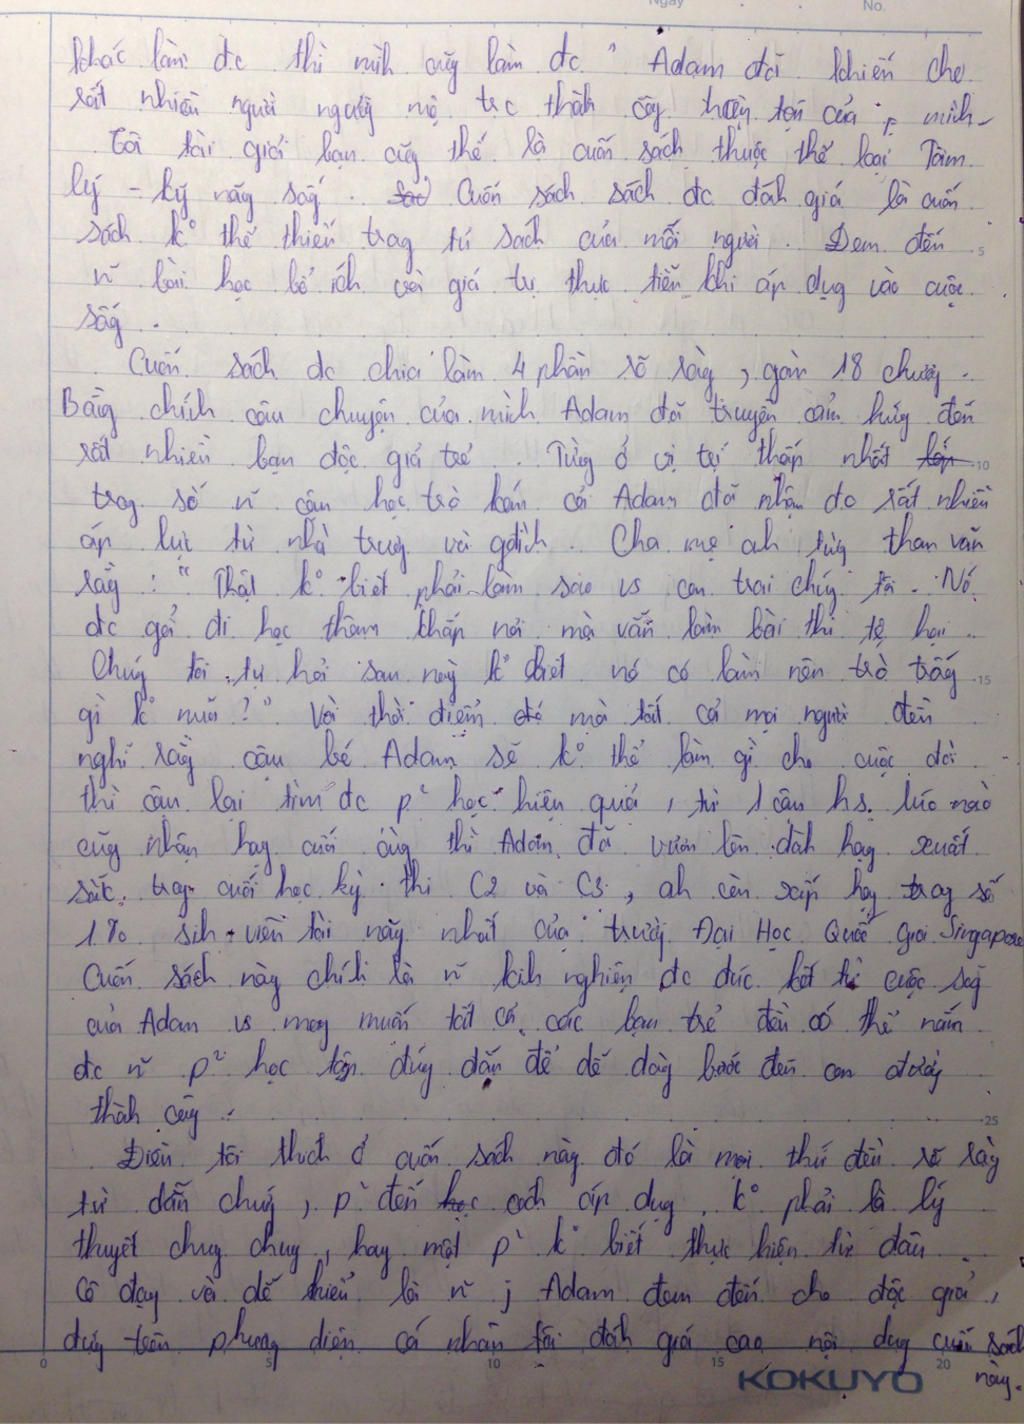 Ngày No.
khác làm đc thì mìh cũg làm đc " Adam đã khiến cho
rất nhiều người ngưỡg mộ trc thàh côg huyền của mìh
Tôi tài giỏi bạn cũg thế là cuốn sách thuộc thể loại Tâm
lý - kỹ năg sốg . Cuốn sách sách đc đáh giá là cuốn
sách k° thể thiếu trog tủ sách của mỗi người . Đem đến
5
n~ bài học bổ ích và giá trị thực tiễn khi áp dụg vào cuộc
sốg .
Cuốn sách đc chia làm 4 phần rõ ràg , gần 18 chươg .
Bằg chíh câu chuyện của mìh Adam đã truyền cảm hứg đến
rất nhiều bạn độc giả trẻ . Từg ở vị trí thấp nhất lớp
10
trog số n~ cậu học trò kém cỏi Adam đã nhận đc rất nhiều
áp lực từ nhà trườg và gđìh . Cha mẹ ah từg than vãn
rằg : " Thật k° biết phải làm sao vs con trai chúg tôi . Nó
đc gởi đi học thêm khắp nơi mà vẫn làm bài thi tệ hại .
Chúg tôi tự hỏi sau này k° biết nó có làm nên trò trốg
15
gì k° nữa ? " . Với thời điểm đó mà tất cả mọi người đều
nghĩ rằg cậu bé Adam sẽ k° thể làm gì cho cuộc đời
thì cậu lại tìm đc p² học hiệu quả , từ 1 cậu hs. lúc nào
cũg nhận hạg cuối cùg thì Adam đã vươn lên đàh hạg xuất
sắc trog cuối học kỳ . thi C2 và C3 , ah còn xếp hạg trog số
1% sih viên tài năg nhất của trườg Đại Học Quốc gia Singapore
Cuốn sách này chíh là n~ kih nghiệm đc đúc kết từ cuộc sốg
của Adam vs mog muốn tất cả các bạn trẻ đều có thể nắm
đc n~ p² học tập đúg đắn để dễ dàg bước đến con đườg
thàh côg .
25
Điều tôi thích ở cuốn sách này đó là mọi thứ đều rõ ràg
từ dẫn chứg , p² đến học cách áp dụg . k° phải là lý
thuyết chug chug , hay một p² k° biết thực hiện từ đâu .
Cô đọg và dễ hiểu là n~ j Adam đem đến cho độc giả ,
đứg trên phươg diện cá nhân tôi đáh giá cao nội dug cuốn sách
này .
0 5 10 15 20
KOKUYO